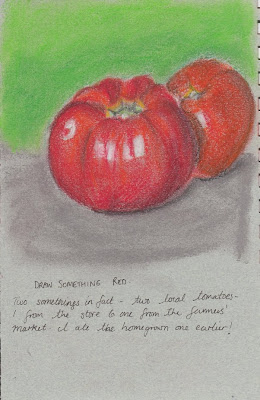 DRAW SOMETHING RED
Two somethings in fact - two local tomatoes -
1 from the store & one from the farmers'
market. I ate the homegrown one earlier!